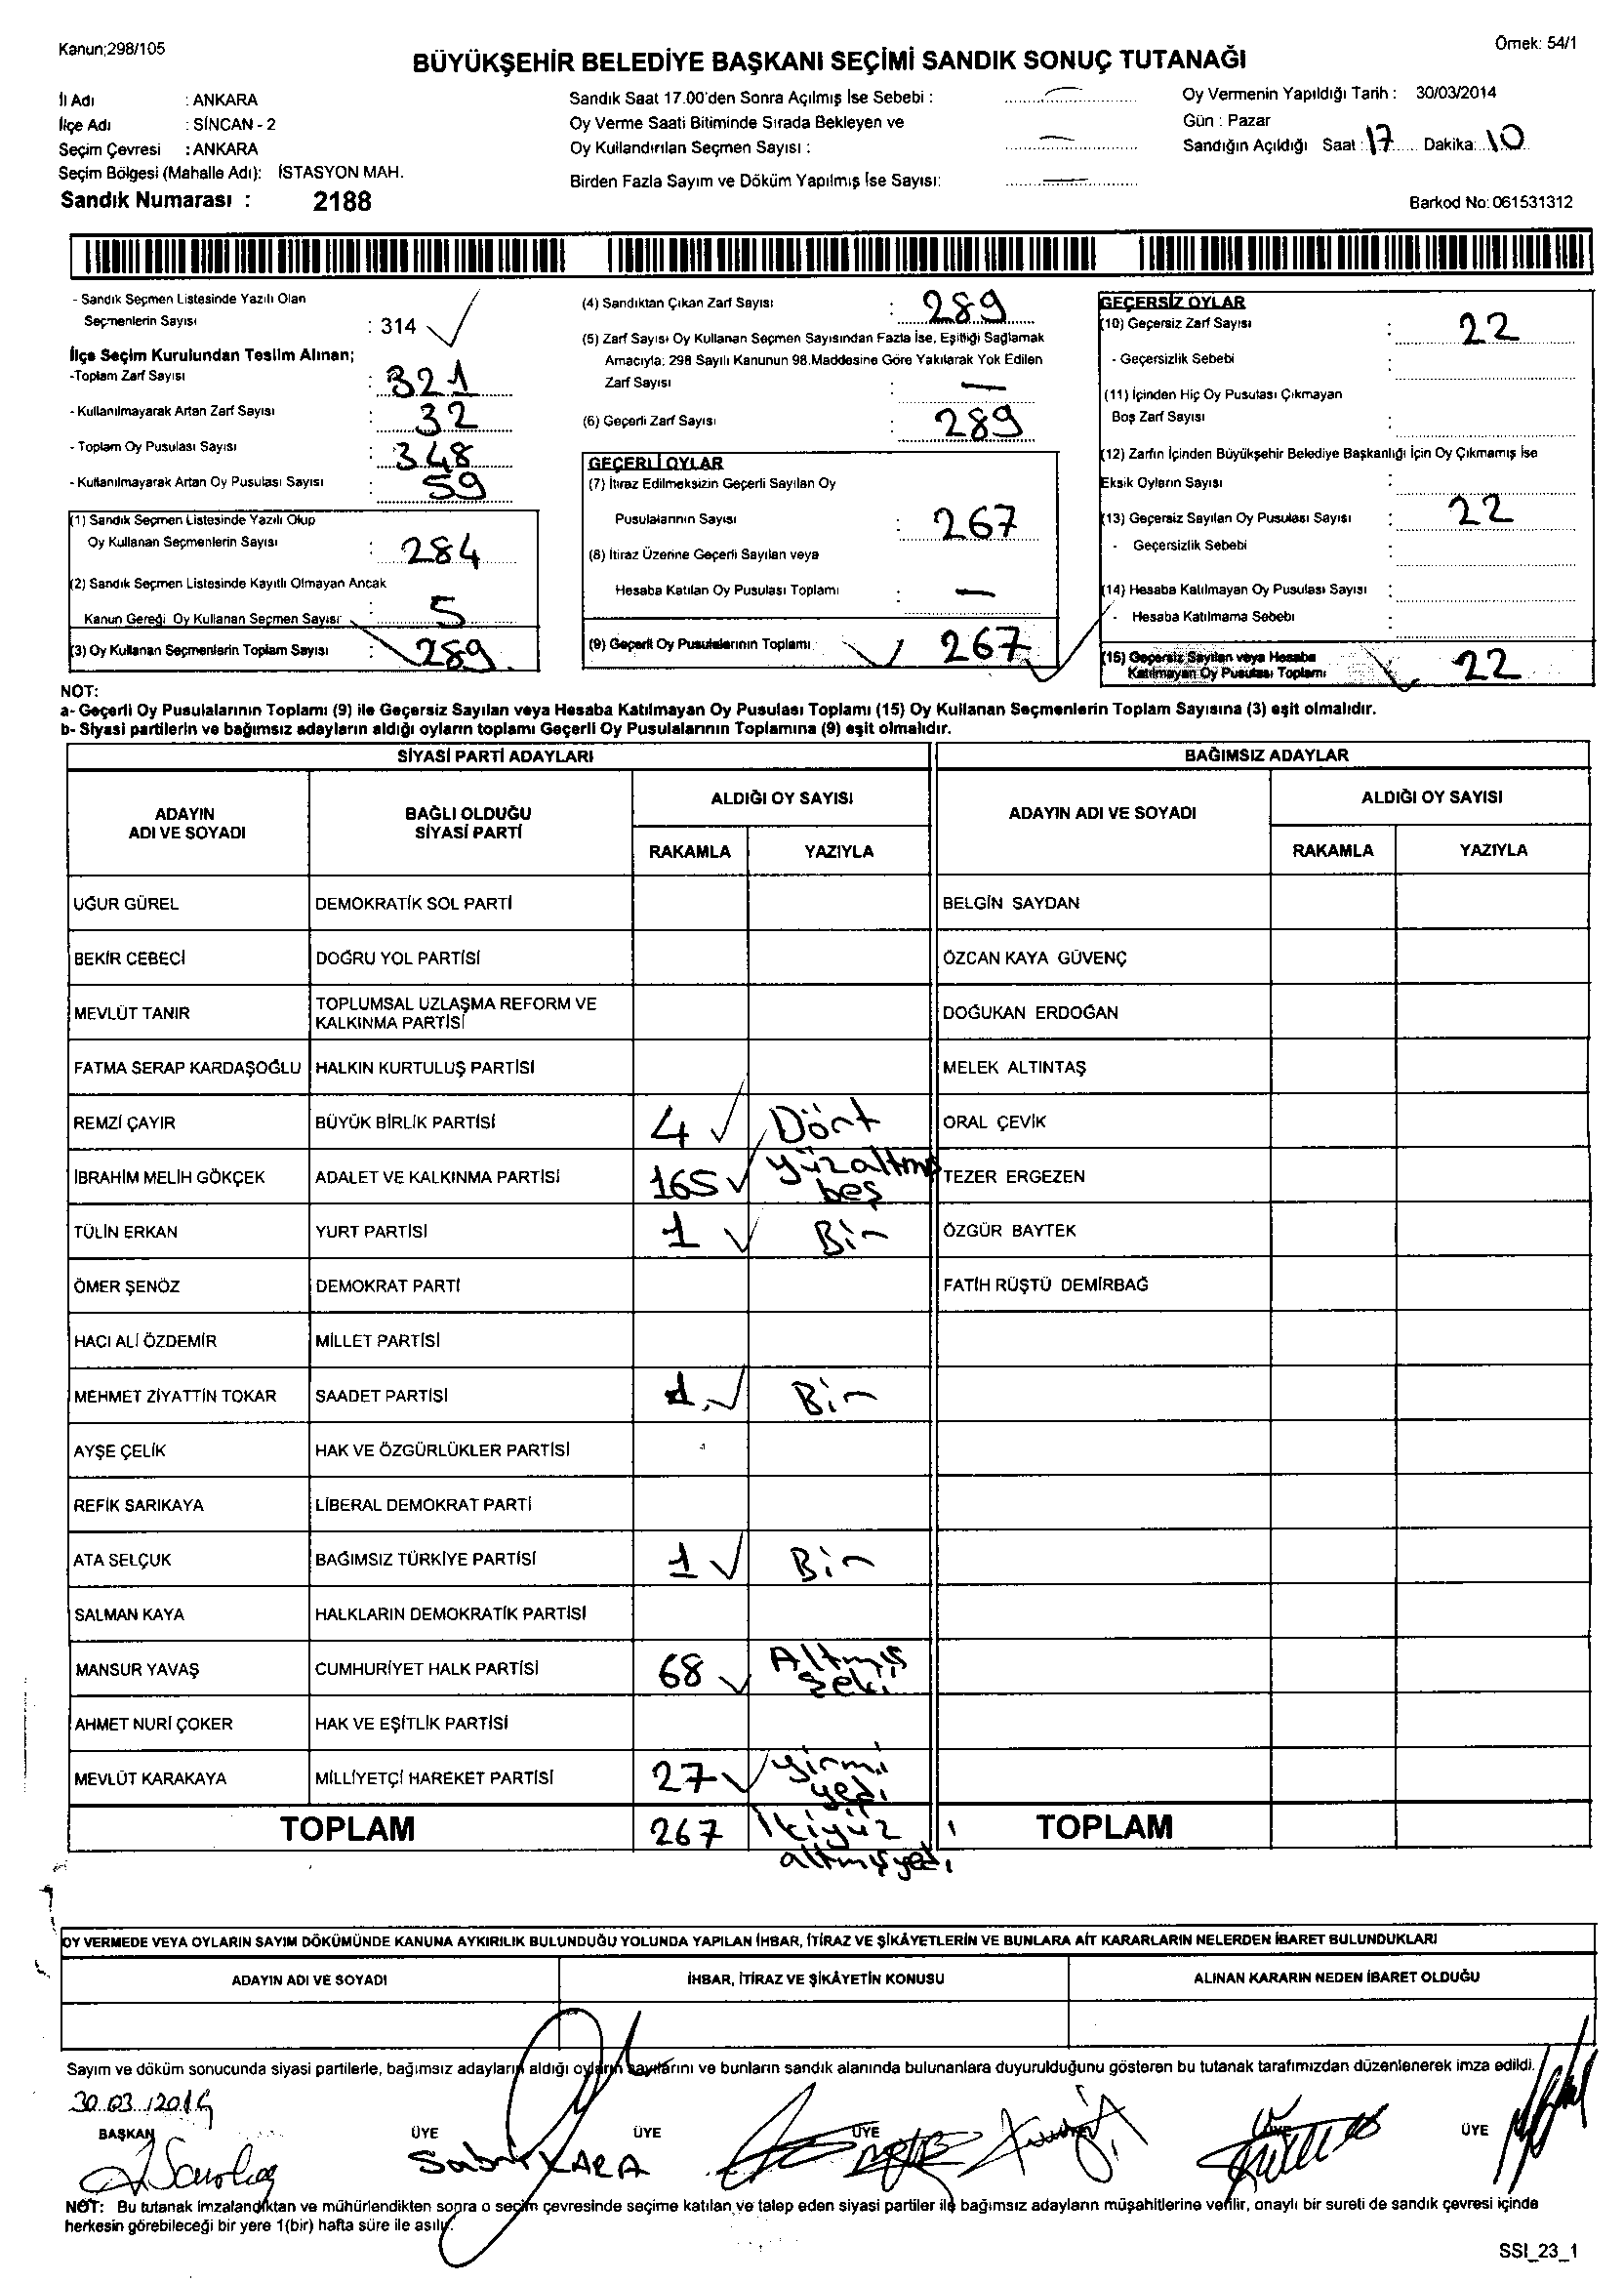 Kanun;298/105
Örnek: 54/1
BÜYÜKŞEHİR BELEDİYE BAŞKANI SEÇİMİ SANDIK SONUÇ TUTANAĞI
İl Adı : ANKARA
İlçe Adı : SİNCAN - 2
Seçim Çevresi : ANKARA
Seçim Bölgesi (Mahalle Adı): İSTASYON MAH.
Sandık Numarası : 2188
Sandık Saat 17.00'den Sonra Açılmış İse Sebebi :
Oy Verme Saati Bitiminde Sırada Bekleyen ve
Oy Kullandırılan Seçmen Sayısı :
Birden Fazla Sayım ve Döküm Yapılmış İse Sayısı:
Oy Vermenin Yapıldığı Tarih : 30/03/2014
Gün : Pazar
Sandığın Açıldığı Saat : 17 Dakika: 10
Barkod No: 061531312
- Sandık Seçmen Listesinde Yazılı Olan
Seçmenlerin Sayısı : 314
İlçe Seçim Kurulundan Teslim Alınan;
-Toplam Zarf Sayısı : 321
- Kullanılmayarak Artan Zarf Sayısı : 32
- Toplam Oy Pusulası Sayısı : 348
- Kullanılmayarak Artan Oy Pusulası Sayısı : 59
(1) Sandık Seçmen Listesinde Yazılı Olup
Oy Kullanan Seçmenlerin Sayısı : 284
(2) Sandık Seçmen Listesinde Kayıtlı Olmayan Ancak
Kanun Gereği Oy Kullanan Seçmen Sayısı : 5
(3) Oy Kullanan Seçmenlerin Toplam Sayısı : 289
(4) Sandıktan Çıkan Zarf Sayısı : 289
(5) Zarf Sayısı Oy Kullanan Seçmen Sayısından Fazla İse, Eşitliği Sağlamak
Amacıyla: 298 Sayılı Kanunun 98.Maddesine Göre Yakılarak Yok Edilen
Zarf Sayısı : —
(6) Geçerli Zarf Sayısı : 289
GEÇERLİ OYLAR
(7) İtiraz Edilmeksizin Geçerli Sayılan Oy
Pusulalarının Sayısı : 267
(8) İtiraz Üzerine Geçerli Sayılan veya
Hesaba Katılan Oy Pusulası Toplamı : —
(9) Geçerli Oy Pusulalarının Toplamı : 267
GEÇERSİZ OYLAR
(10) Geçersiz Zarf Sayısı : 22
- Geçersizlik Sebebi :
(11) İçinden Hiç Oy Pusulası Çıkmayan
Boş Zarf Sayısı :
(12) Zarfın İçinden Büyükşehir Belediye Başkanlığı İçin Oy Çıkmamış İse
Eksik Oyların Sayısı :
(13) Geçersiz Sayılan Oy Pusulası Sayısı : 22
- Geçersizlik Sebebi :
(14) Hesaba Katılmayan Oy Pusulası Sayısı :
- Hesaba Katılmama Sebebi :
(15) Geçersiz Sayılan veya Hesaba
Katılmayan Oy Pusulası Toplamı 22
NOT:
a- Geçerli Oy Pusulalarının Toplamı (9) ile Geçersiz Sayılan veya Hesaba Katılmayan Oy Pusulası Toplamı (15) Oy Kullanan Seçmenlerin Toplam Sayısına (3) eşit olmalıdır.
b- Siyasi partilerin ve bağımsız adayların aldığı oyların toplamı Geçerli Oy Pusulalarının Toplamına (9) eşit olmalıdır.
SİYASİ PARTİ ADAYLARI BAĞIMSIZ ADAYLAR
ADAYIN
ADI VE SOYADI
BAĞLI OLDUĞU
SİYASİ PARTİ
ALDIĞI OY SAYISI
RAKAMLA YAZIYLA
ADAYIN ADI VE SOYADI
ALDIĞI OY SAYISI
RAKAMLA YAZIYLA
UĞUR GÜREL DEMOKRATİK SOL PARTİ BELGİN SAYDAN
BEKİR CEBECİ DOĞRU YOL PARTİSİ ÖZCAN KAYA GÜVENÇ
MEVLÜT TANIR TOPLUMSAL UZLAŞMA REFORM VE
KALKINMA PARTİSİ DOĞUKAN ERDOĞAN
FATMA SERAP KARDAŞOĞLU HALKIN KURTULUŞ PARTİSİ MELEK ALTINTAŞ
REMZİ ÇAYIR BÜYÜK BİRLİK PARTİSİ 4 Dört ORAL ÇEVİK
İBRAHİM MELİH GÖKÇEK ADALET VE KALKINMA PARTİSİ 165 yüzaltmış
beş TEZER ERGEZEN
TÜLİN ERKAN YURT PARTİSİ 1 Bir ÖZGÜR BAYTEK
ÖMER ŞENÖZ DEMOKRAT PARTİ FATİH RÜŞTÜ DEMİRBAĞ
HACI ALİ ÖZDEMİR MİLLET PARTİSİ
MEHMET ZİYATTİN TOKAR SAADET PARTİSİ 1 Bir
AYŞE ÇELİK HAK VE ÖZGÜRLÜKLER PARTİSİ
REFİK SARIKAYA LİBERAL DEMOKRAT PARTİ
ATA SELÇUK BAĞIMSIZ TÜRKİYE PARTİSİ 1 Bir
SALMAN KAYA HALKLARIN DEMOKRATİK PARTİSİ
MANSUR YAVAŞ CUMHURİYET HALK PARTİSİ 68 Altmış
Sekiz
AHMET NURİ ÇOKER HAK VE EŞİTLİK PARTİSİ
MEVLÜT KARAKAYA MİLLİYETÇİ HAREKET PARTİSİ 27 yirmi
yedi
TOPLAM 267 İkiyüz TOPLAM
altmışyedi
OY VERMEDE VEYA OYLARIN SAYIM DÖKÜMÜNDE KANUNA AYKIRILIK BULUNDUĞU YOLUNDA YAPILAN İHBAR, İTİRAZ VE ŞİKÂYETLERİN VE BUNLARA AİT KARARLARIN NELERDEN İBARET BULUNDUKLARI
ADAYIN ADI VE SOYADI İHBAR, İTİRAZ VE ŞİKÂYETİN KONUSU ALINAN KARARIN NEDEN İBARET OLDUĞU
Sayım ve döküm sonucunda siyasi partilerle, bağımsız adayların aldığı oyların sayılarını ve bunların sandık alanında bulunanlara duyurulduğunu gösteren bu tutanak tarafımızdan düzenlenerek imza edildi.
30.03.2014
BAŞKAN ÜYE ÜYE ÜYE ÜYE ÜYE
Sabri KARA
NOT: Bu tutanak imzalandıktan ve mühürlendikten sonra o seçim çevresinde seçime katılan ve talep eden siyasi partiler ile bağımsız adayların müşahitlerine verilir, onaylı bir sureti de sandık çevresi içinde
herkesin görebileceği bir yere 1(bir) hafta süre ile asılır.
SSI_23_1